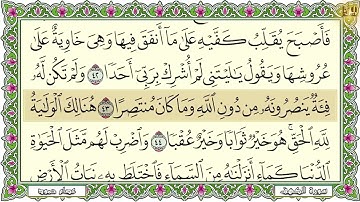 فَأَصْبَحَ يُقَلِّبُ كَفَّيْهِ عَلَىٰ مَآ أَنفَقَ فِيهَا وَهِيَ خَاوِيَةٌ عَلَىٰ
عُرُوشِهَا وَيَقُولُ يَٰلَيْتَنِي لَمْ أُشْرِكْ بِرَبِّيٓ أَحَدًا ٤٢ وَلَمْ تَكُن لَّهُۥ
فِئَةٌ يَنصُرُونَهُۥ مِن دُونِ ٱللَّهِ وَمَا كَانَ مُنتَصِرًا ٤٣ هُنَالِكَ ٱلْوَلَٰيَةُ
لِلَّهِ ٱلْحَقِّ هُوَ خَيْرٌ ثَوَابًا وَخَيْرٌ عُقْبًا ٤٤ وَٱضْرِبْ لَهُم مَّثَلَ ٱلْحَيَوٰةِ
ٱلدُّنْيَا كَمَآءٍ أَنزَلْنَٰهُ مِنَ ٱلسَّمَآءِ فَٱخْتَلَطَ بِهِۦ نَبَاتُ ٱلْأَرْضِ
سورة الكهف